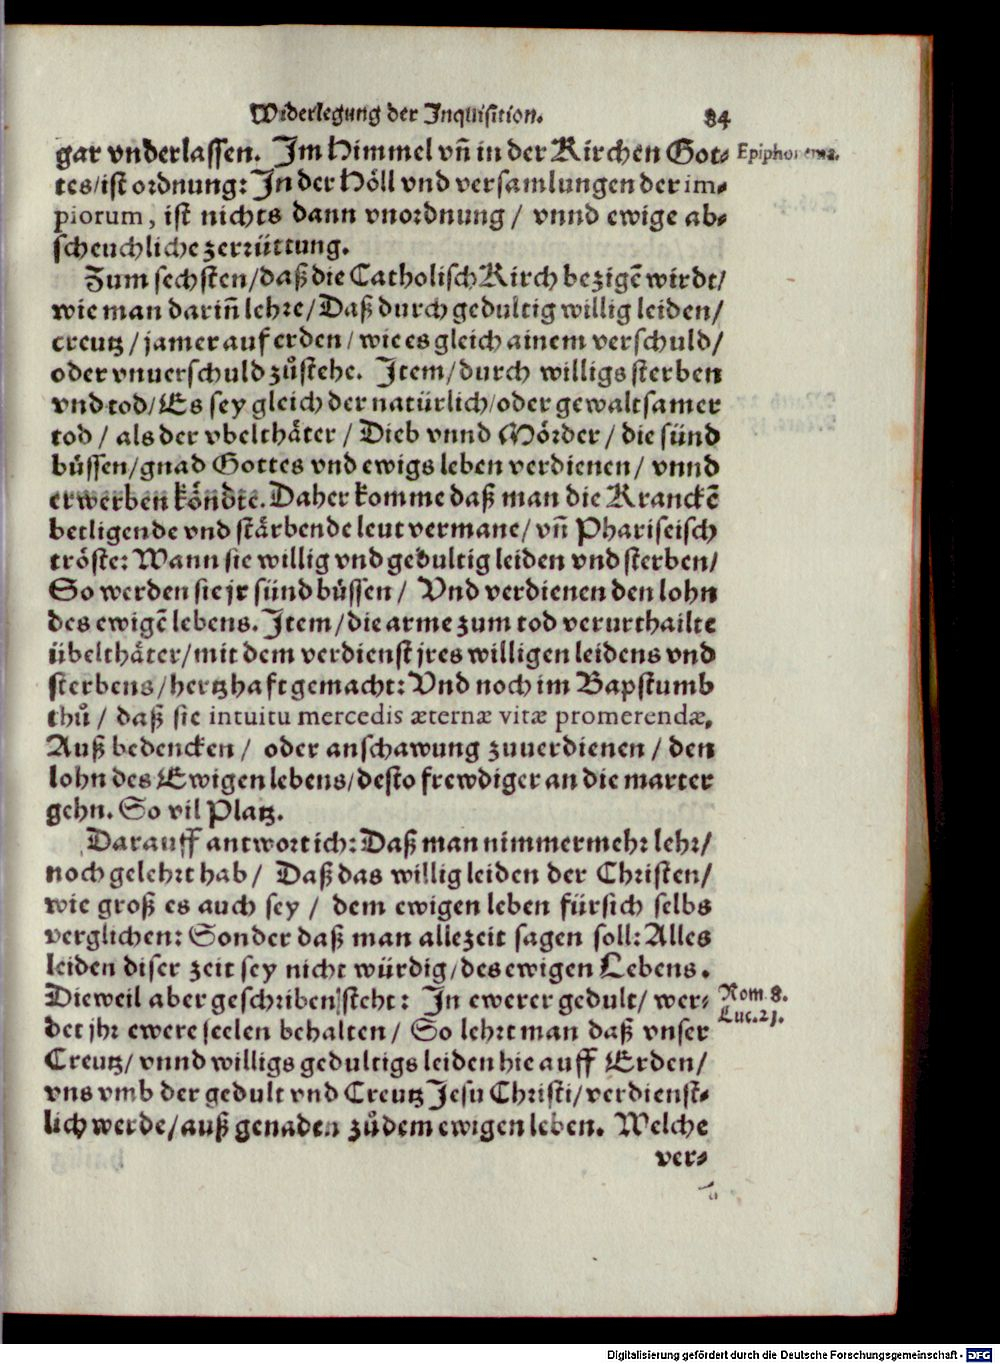 Widerlegung der Inquisition. 84
gar vnderlassen. Im Himmel vn̄ in der Kirchen Got⸗ Epiphonema.
tes/ist ordnung: In der Höll vnd versamlungen der im⸗
piorum, ist nichts dann vnordnung / vnnd ewige ab⸗
scheuchliche zerrüttung.
Zum sechsten/daß die Catholisch Kirch bezigē wirdt/
wie man dariñ lehre/Daß durch gedultig willig leiden/
creutz/jamer auf erden/wie es gleich ainem verschuld/
oder vnuerschuld zůstehe. Item/durch willigs sterben
vnd tod/Es sey gleich der natürlich/oder gewaltsamer
tod / als der vbelthäter / Dieb vnnd Mörder / die sünd
bůssen/gnad Gottes vnd ewigs leben verdienen/ vnnd
erwerben köndte. Daher komme daß man die Kranckē
betligende vnd stärbende leut vermane/ vn̄ Phariseisch
tröste: Wann sie willig vnd gedultig leiden vnd sterben/
So werden sie jr sünd bůssen/ Vnd verdienen den lohn
des ewigē lebens. Item/die arme zum tod verurthailte
übelthäter/mit dem verdienst jres willigen leidens vnd
sterbens/hertzhaft gemacht: Vnd noch im Bapstumb
thů / daß sie intuitu mercedis æternæ vitæ promerendæ,
Auß bedencken/ oder anschawung zuuerdienen / den
lohn des Ewigen lebens/desto frewdiger an die marter
gehn. So vil Platz.
Darauff antwort ich: Daß man nimmermehr lehr/
noch gelehrt hab/ Daß das willig leiden der Christen/
wie groß es auch sey / dem ewigen leben fürsich selbs
verglichen: Sonder daß man allezeit sagen soll: Alles
leiden diser zeit sey nicht würdig/des ewigen Lebens.
Dieweil aber geschriben steht: In ewerer gedult/ wer⸗ Rom 8.
det jhr ewere seelen behalten/ So lehrt man daß vnser Luc.21.
Creutz/ vnnd willigs gedultigs leiden hie auff Erden/
vns vmb der gedult vnd Creutz Jesu Christi/verdienst⸗
lich werde/auß genaden zů dem ewigen leben. Welche
ver⸗
Digitalisierung gefördert durch die Deutsche Forschungsgemeinschaft - DFG